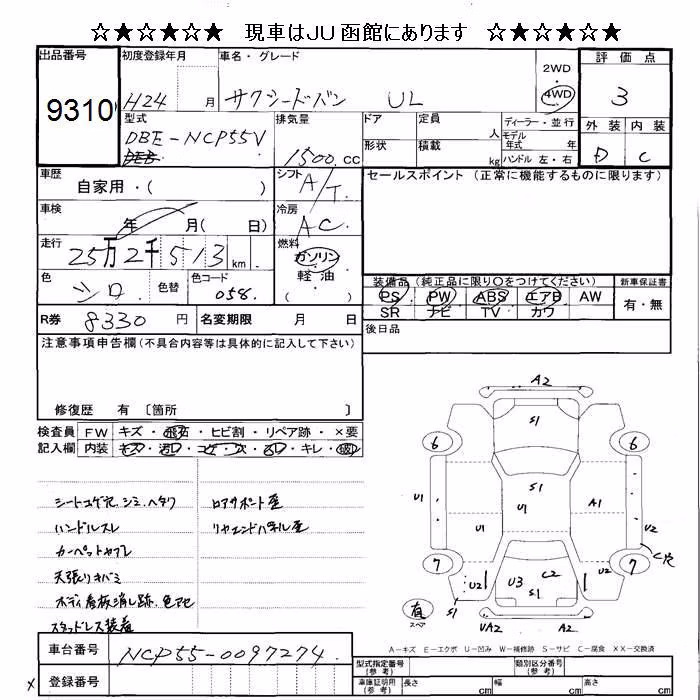 ☆★☆★☆☆ 現車はJU函館にあります ☆★☆★☆☆
出品番号
9310
初度登録年月
H24 月
車名・グレード
サクシードバン UL
2WD
4WD
評価点
3
外装 内装
D C
型式
DBE-NCP55V
排気量
1500 cc
ドア
形状
定員 人
積載 kg
ディーラー・並行
モデル年式 年
ハンドル 左・右
車歴
自家用・( )
シフト
A/T
セールスポイント (正常に機能するものに限ります)
車検
年 月( 日)
冷房
AC
走行
25万2千513 km
燃料
ガソリン
軽油
( )
色
シロ
色替
色コード
058
装備品 (純正品に限り○をつけてください)
PS PW ABS エアB AW
SR ナビ TV カワ
新車保証書
有・無
R券 8330 円
名変期限 月 日
後日品
注意事項申告欄(不具合内容等は具体的に記入して下さい)
修復歴 有 〔箇所 〕
検査員記入欄
FW キズ・飛石・ヒビ割・リペア跡・×要
内装 キズ・汚レ・コゲ・穴・凹・キレ・
シートコゲ穴、シミ、ヘタリ
ハンドルスレ
カーペットヤブレ
天張りキバミ
ボディ看板消し跡、色アセ
スタッドレス装着
ロアサポート歪
リヤエンドパネル歪
A2
S1
6 6
U1 S1 A1
U1 U1 U2
7 7
C穴
U2 U3 C2 S1 U2
有
スペア
S1
UA2 A2
A-キズ E-エクボ U-凹み W-補修跡 S-サビ C-腐食 XX-交換済
車台番号
NCP55-0097274
登録番号
×
型式指定番号(参考)
類別区分番号(参考)
車庫証明用(参考)
長さ cm
幅 cm
高さ cm